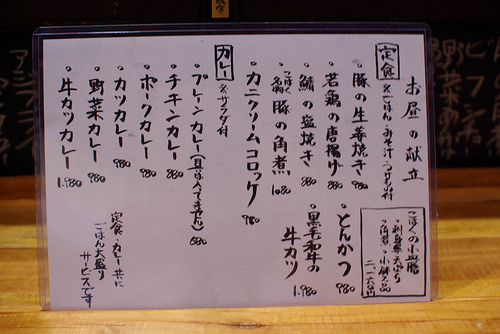 お昼の献立
定食 ※ごはん・みそ汁・つけもの付
・豚の生姜焼き 980
・若鶏の唐揚げ 880
・鯖の塩焼き 880
・こはく名物 豚の角煮 1080
・カニクリームコロッケ 980
・とんかつ 980
・黒毛和牛の牛カツ 1.980
こはくの小皿膳
カレー ※サラダ付
・プレーンカレー(具は入ってません) 680
・チキンカレー 880
・ポークカレー 980
・カツカレー 980
・野菜カレー 980
・牛カツカレー 1.980
定食・カレー共に
ごはん大盛り
サービスです